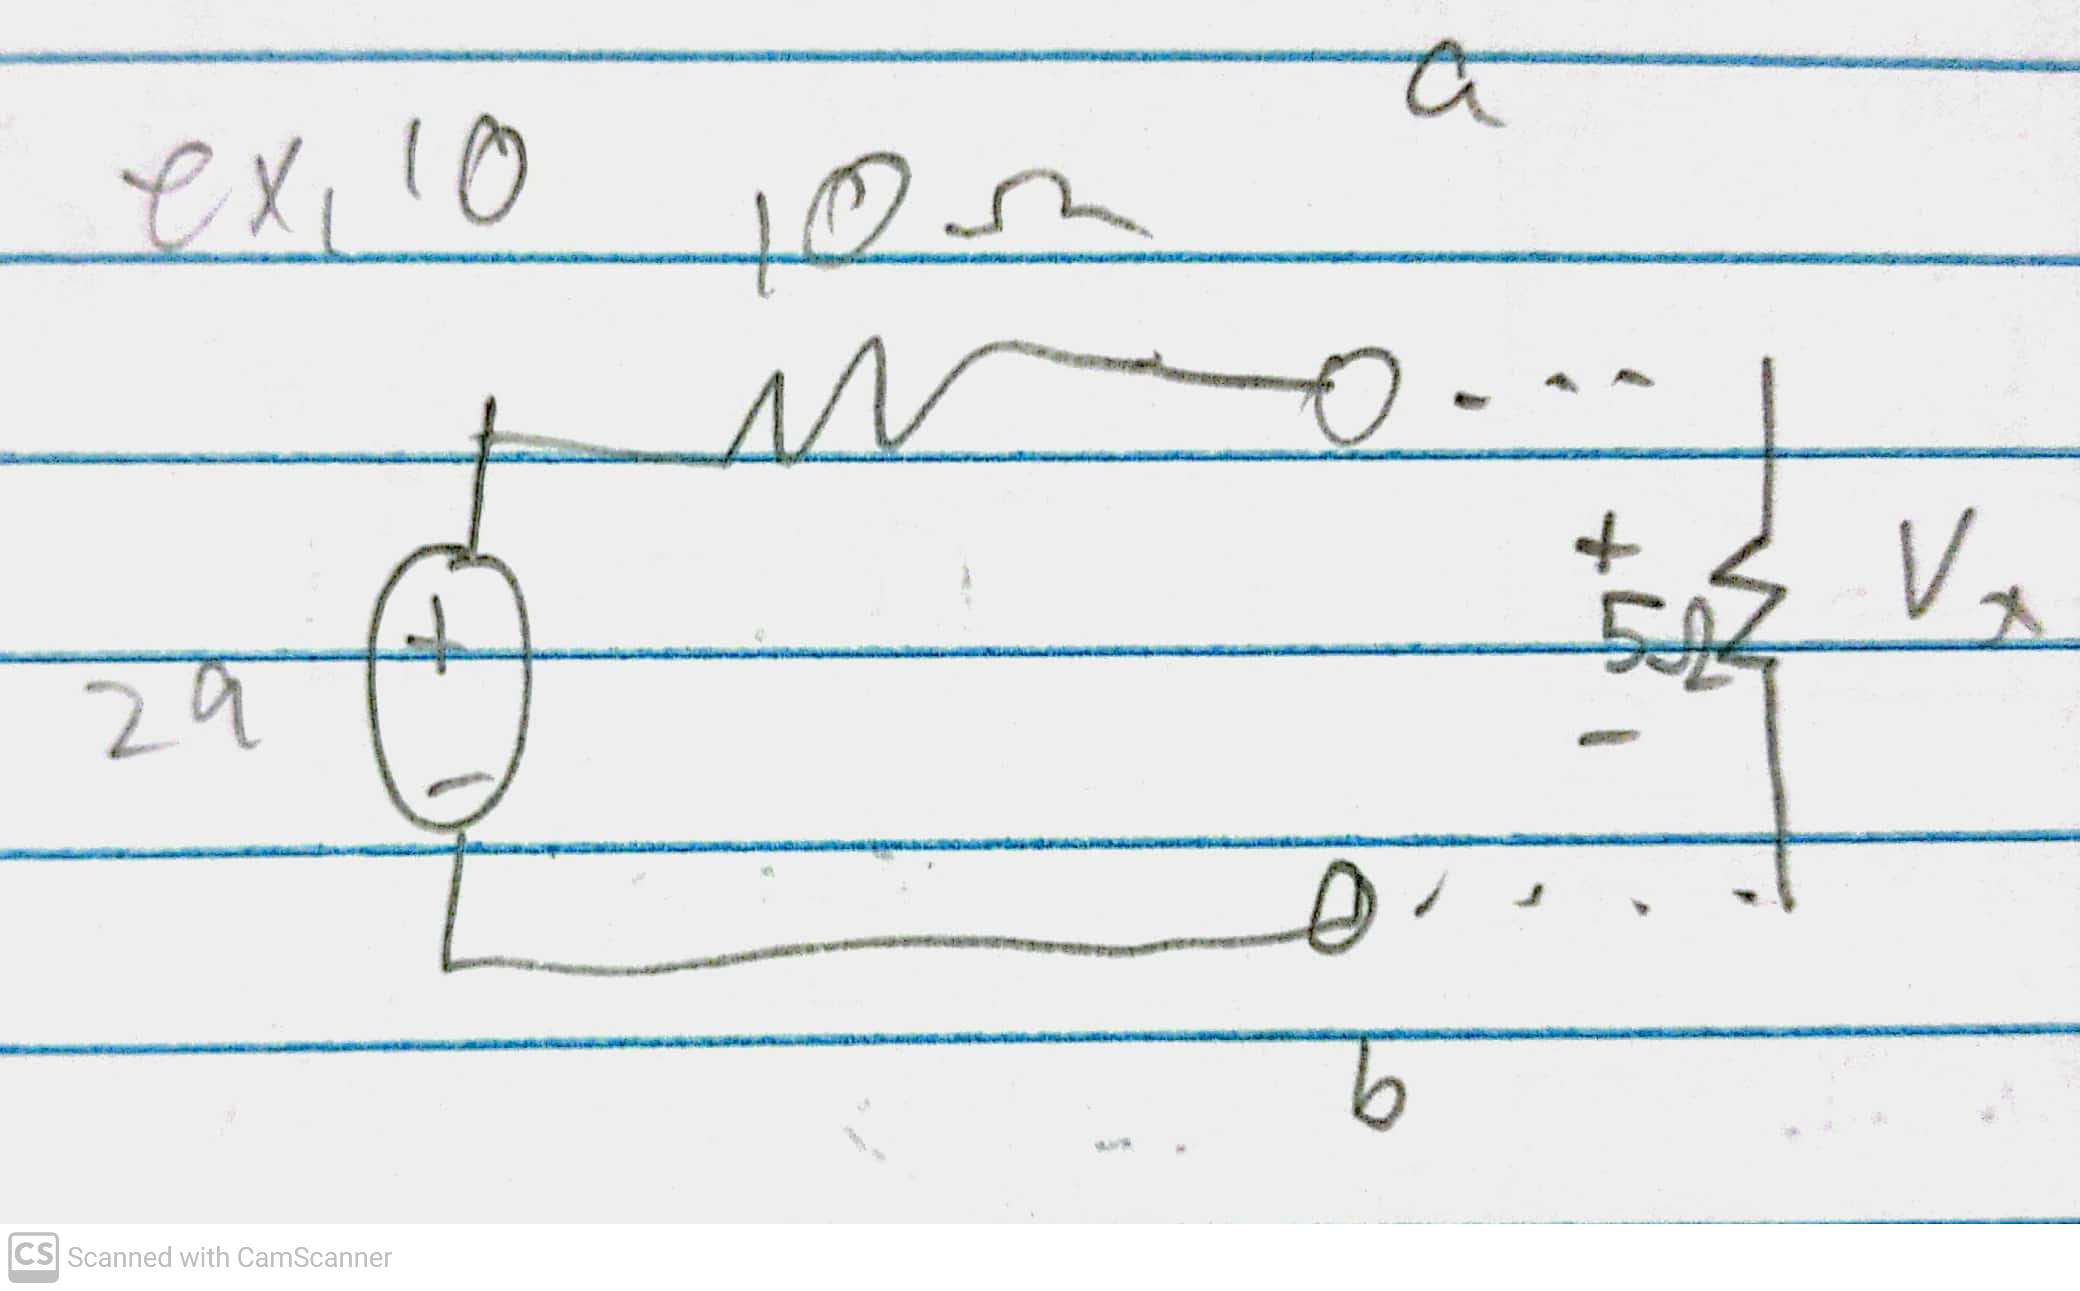 a
ex, 10
10 Ω
+
5Ω
-
Vx
+
-
29
b
CS Scanned with CamScanner